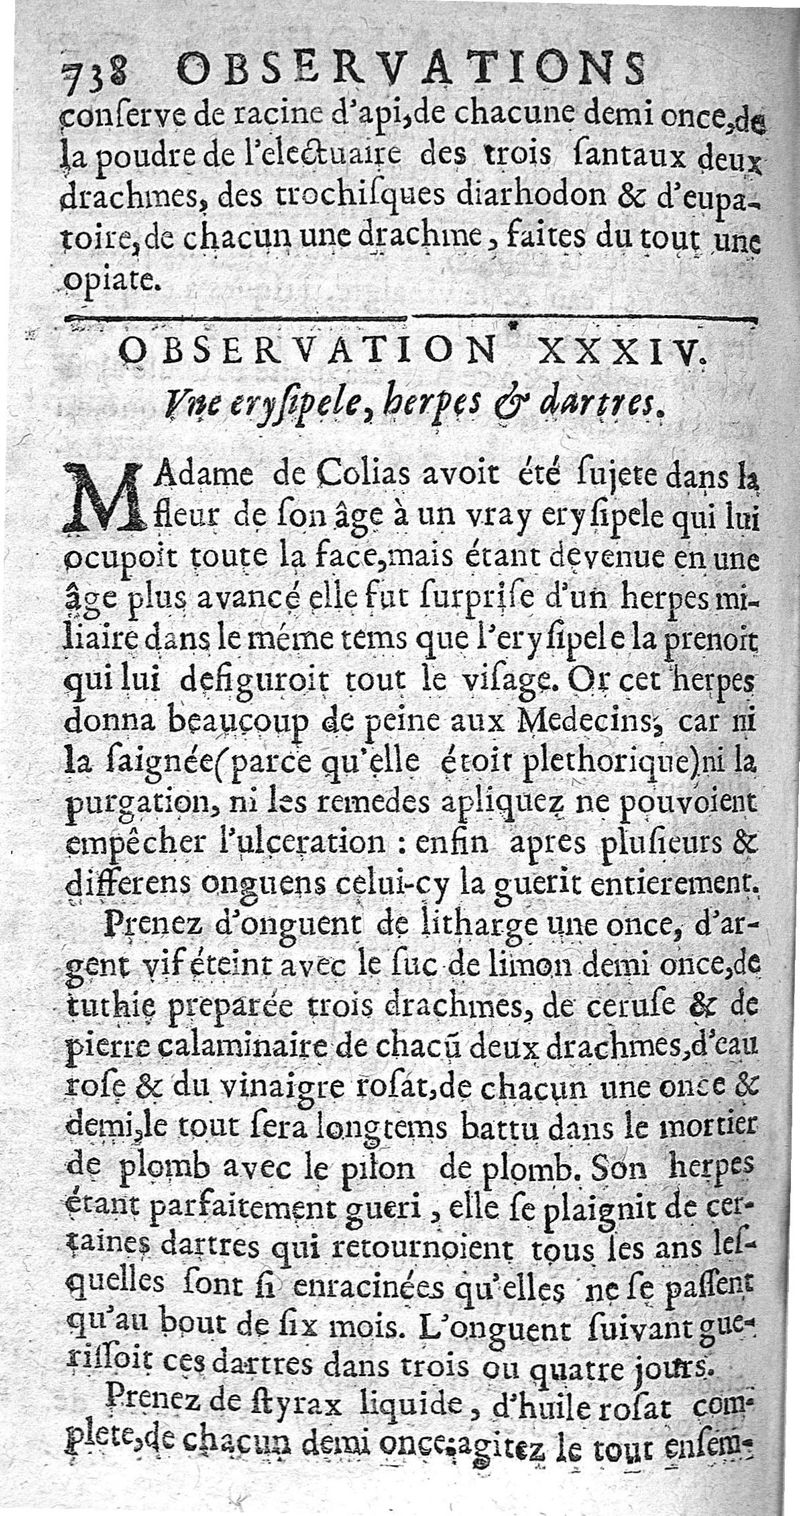 738 OBSERVATIONS
conſerve de racine d'api,de chacune demi once,de
la poudre de l'electuaire des trois ſantaux deux
drachmes, des trochiſques diarhodon & d'eupa-
toire,de chacun une drachme, faites du tout une
opiate.
OBSERVATION XXXIV.
Vne eryſipele, herpes & dartres.
MAdame de Colias avoit été ſujete dans la
fleur de ſon âge à un vray eryſipele qui lui
ocupoit toute la face,mais étant devenue en une
âge plus avancé elle fut ſurpriſe d'un herpes mi-
liaire dans le méme tems que l'eryſipele la prenoit
qui lui defiguroit tout le viſage. Or cet herpes
donna beaucoup de peine aux Medecins, car ni
la ſaignée(parce qu'elle étoit plethorique)ni la
purgation, ni les remedes apliquez ne pouvoient
empêcher l'ulceration : enfin apres pluſieurs &
differens onguens celui-cy la guerit entierement.
Prenez d'onguent de litharge une once, d'ar-
gent vif éteint avec le ſuc de limon demi once,de
tuthie preparée trois drachmes, de ceruſe & de
pierre calaminaire de chacū deux drachmes,d'eau
roſe & du vinaigre roſat,de chacun une once &
demi,le tout ſera longtems battu dans le mortier
de plomb avec le pilon de plomb. Son herpes
étant parfaitement gueri, elle ſe plaignit de cer-
taines dartres qui retournoient tous les ans leſ-
quelles ſont ſi enracinées qu'elles ne ſe paſſent
qu'au bout de ſix mois. L'onguent ſuivant gue-
riſſoit ces dartres dans trois ou quatre jours.
Prenez de ſtyrax liquide, d'huile roſat com-
plete,de chacun demi once;agitez le tout enſem-